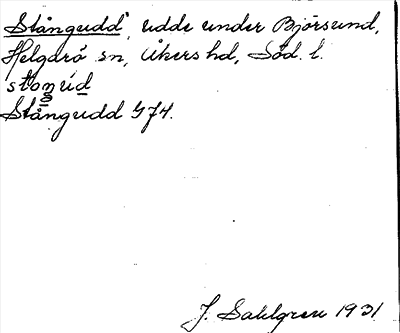 Stångudd, udde under Björsund,
Helgarö sn, Åkers hd, Söd. l.
stoŋúd
Stångudd G74.
J. Sahlgren 1931